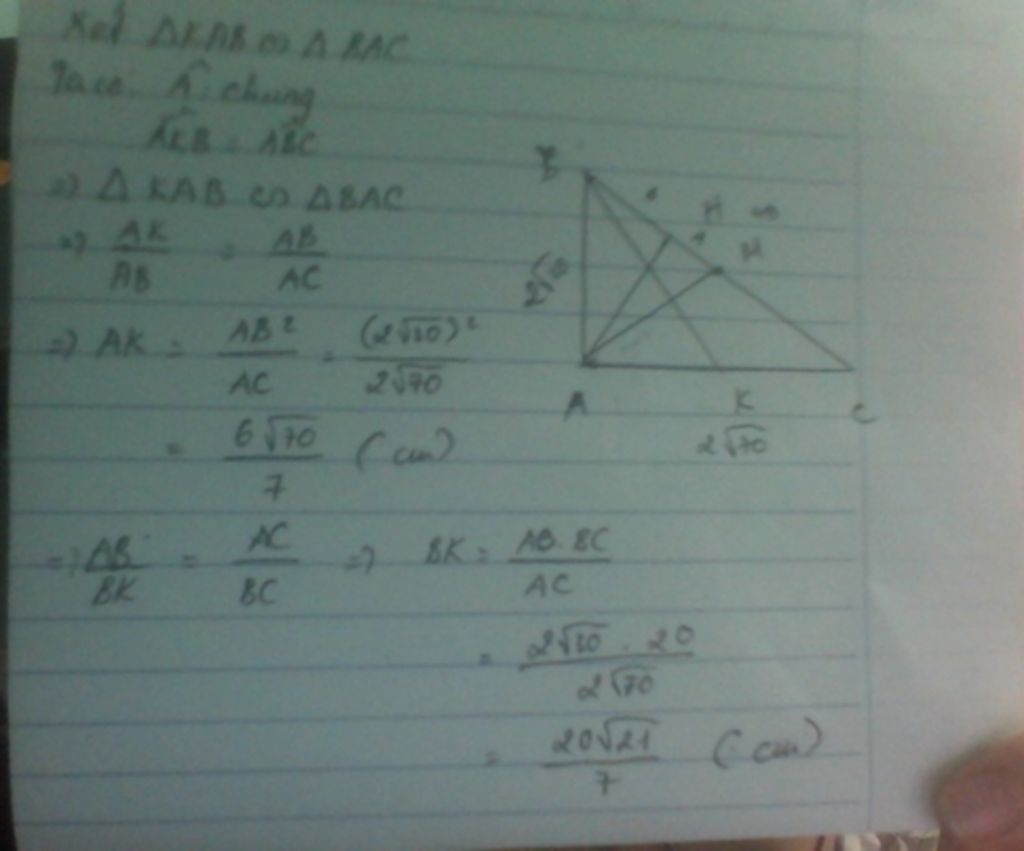 Xét ΔKAB ∽ ΔBAC
Ta có: Â: chung
AKB = ABC
=> Δ KAB ∽ ΔBAC
=> AK/AB = AB/AC
=> AK = AB²/AC = (2√30)²/2√70
= 6√70/7 (cm)
=> AB/BK = AC/BC => BK = AB.BC/AC
= 2√30 . 20/2√70
= 20√21/7 (cm)
B
H
M
A
K
C
2√70